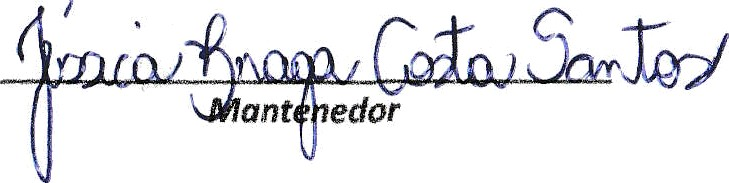 Jéssica Braga Costa Santos
Mantenedor